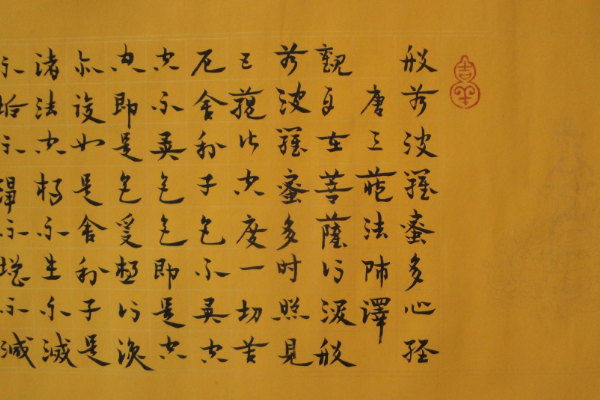 般若波羅蜜多心経
唐三蔵法師譯
観自在菩薩行深般
若波羅蜜多时照見
五蘊皆空度一切苦
厄舍利子色不異空
空不異色色即是空
空即是色受想行識
亦復如是舍利子是
諸法空相不生不滅
不垢不浄不増不減